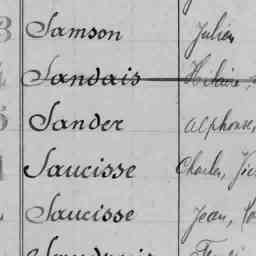 3 Samson Julien
Sandais Hilaire,
5 Sander Alphonse,
Saucisse Charles,
Saucisse Jean,